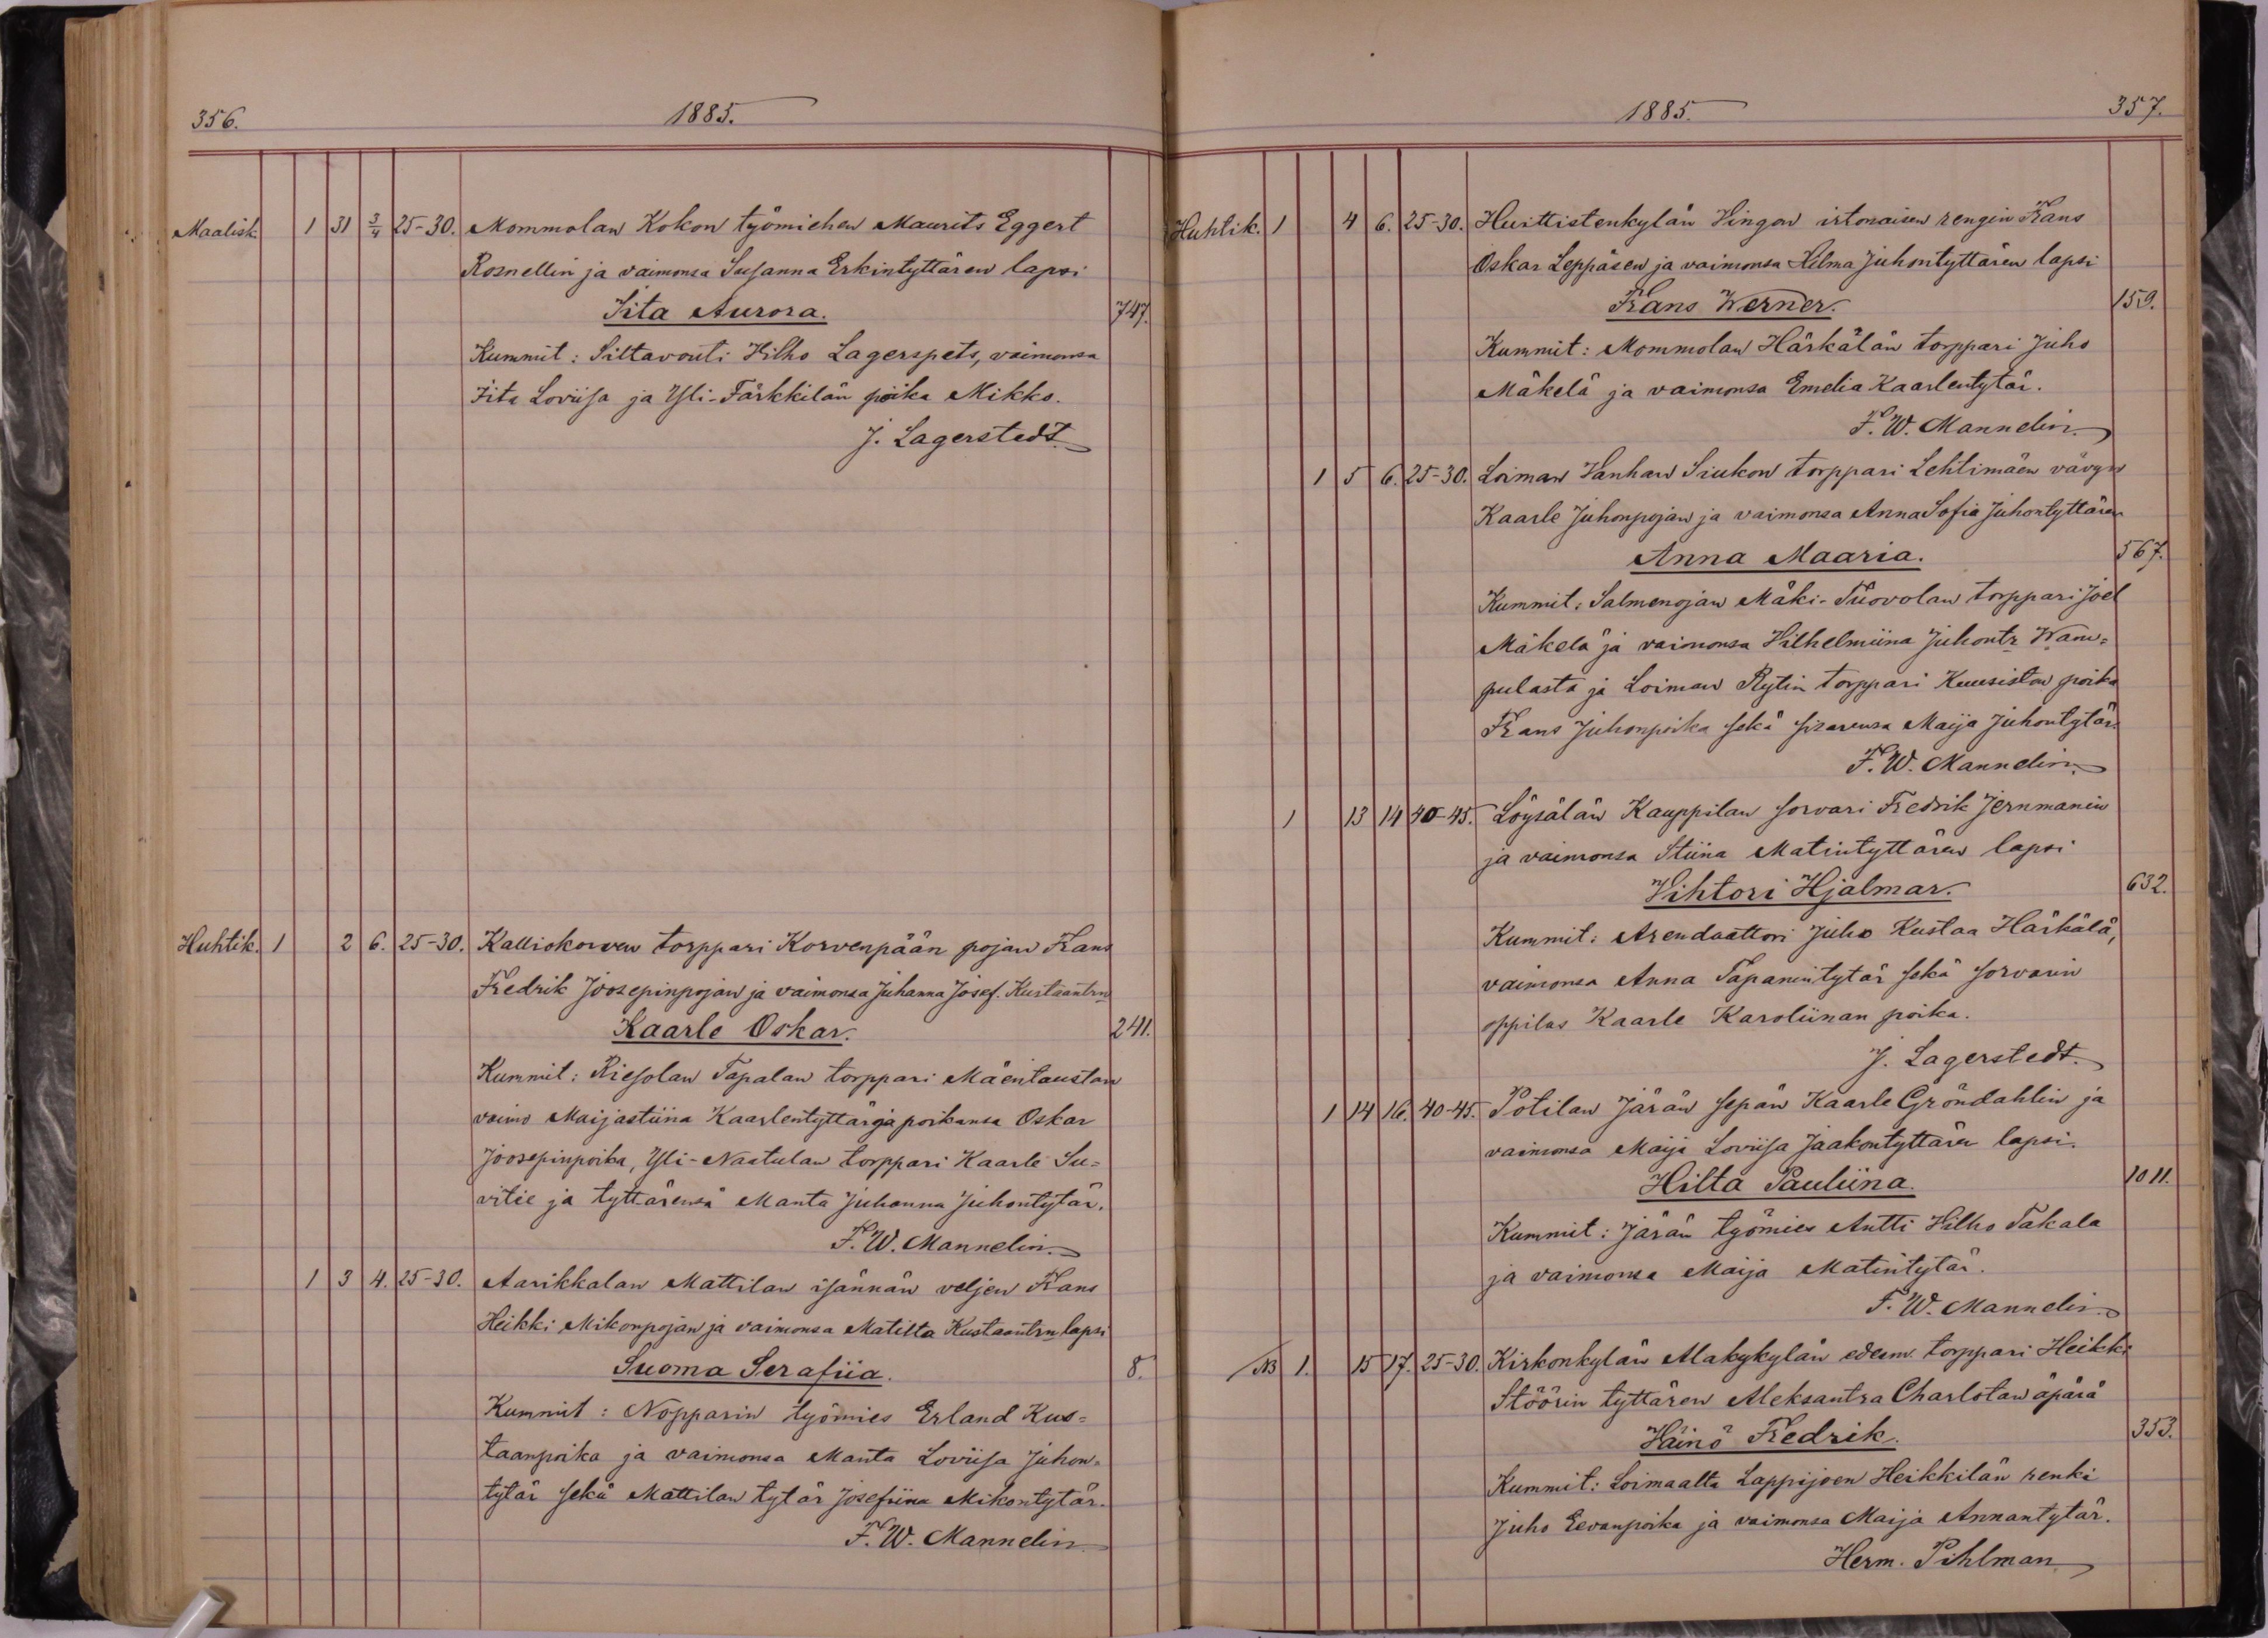 356.
1885.
Maalisk. 1 31 3/4 25-30. Mommolan Kokon työmiehen Maurits Eggert
Rosnellin ja vaimonsa Susanna Erkintyttären lapsi
Iita Aurora. 747.
Kummit: Siltavouti Vilho Lagerspets, vaimonsa
Iita Loviisa ja Yli-Färkkilän poika Mikko.
J. Lagerstedt.
Huhtik. 1 2 6. 25-30. Kalliokorven torppari Korvenpään pojan Frans
Fredrik Joosepinpojan ja vaimonsa Juhanna Josef. Kustaantrn
Kaarle Oskar. 241.
Kummit: Riesolan Tapalan torppari Mäentaustan
vaimo Maijastiina Kaarlentyttär ja poikansa Oskar
Joosepinpoika, Yli-Naatulan torppari Kaarle Su=
vitie ja tyttärensä Manta Juhanna Juhontytär.
F. W. Mannelin.
1 3 4. 25-30. Aarikkalan Mattilan isännän veljen Frans
Heikki Mikonpojan ja vaimonsa Matilta Kustaantrn lapsi
Suoma Serafiia. 8.
Kummit: Nopparin työmies Erland Kus=
taanpoika ja vaimonsa Manta Loviisa Juhon=
tytär sekä Mattilan tytär Josefiina Mikontytär.
F. W. Mannelin
1885.
357.
Huhtik. 1 4 6. 25-30. Huittistenkylän Hingon irtonaisen rengin Frans
Oskar Leppäsen ja vaimonsa Helma Juhontyttären lapsi
Frans Werner. 159.
Kummit: Mommolan Härkälän torppari Juho
Mäkelä ja vaimonsa Emelia Kaarlentytär.
F. W. Mannelin.
1 5 6. 25-30. Loiman Vanhan Siukon torppari Lehtimäen vävyn
Kaarle Juhonpojan ja vaimonsa Anna Sofia Juhontyttären
Anna Maaria. 567.
Kummit: Salmenojan Mäki-Tuovolan torppari Joel
Mäkelä ja vaimonsa Vilhelmiina Juhontr Wam=
pulasta ja Loiman Rytin torppari Kuusiston poika
Frans Juhonpoika sekä sisarensa Maija Juhontytär.
F. W. Mannelin.
1 13 14 40-45. Löysälän Kauppilan sorvari Fredrik Jernmanin
ja vaimonsa Stiina Matintyttären lapsi
Vihtori Hjalmar. 632.
Kummit: Arendaattori Juho Kustaa Härkälä,
vaimonsa Anna Tapanintytär sekä sorvarin
oppilas Kaarle Karoliinan poika.
J. Lagerstedt.
1 14 16. 40-45. Potilan Järän sepän Kaarle Gröndahlin ja
vaimonsa Maija Loviisa Jaakontyttären lapsi.
Hilta Pauliina. 1011.
Kummit: Järän työmies Antti Vilho Takala
ja vaimonsa Maija Matintytär.
F. W. Mannelin
NB 1. 15 17. 25-30. Kirkonkylän Alakykylän edesm. torppari Heikki
Stöörin tyttären Aleksantra Charlotan äpärä
Väinö Fredrik. 353.
Kummit: Loimaalta Lappijoen Heikkilän renki
Juho Eevanpoika ja vaimonsa Maija Annantytär.
Herm. Pihlman